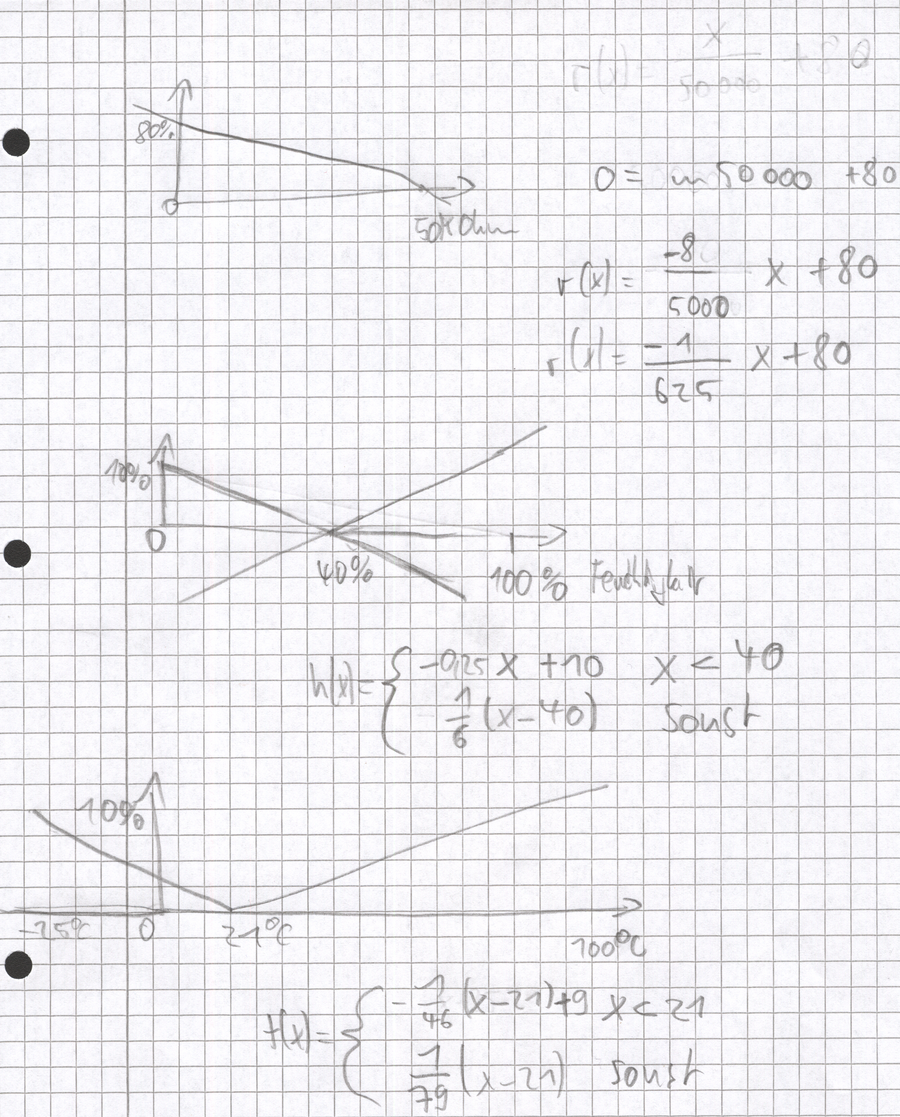 r(x) = x/50000 + 80
80%
0
50KOhm
0 = m 50000 +80
r(x) = -8/5000 x +80
r(x) = -1/625 x +80
10%
0
40%
100% Feuchtigkeit
h(x) = { -0,25x +10 x < 40
1/6 (x-40) sonst
10%
-25°C
0
21°C
100°C
t(x) = { -1/46 (x-21)+9 x < 21
1/79 (x-21) sonst